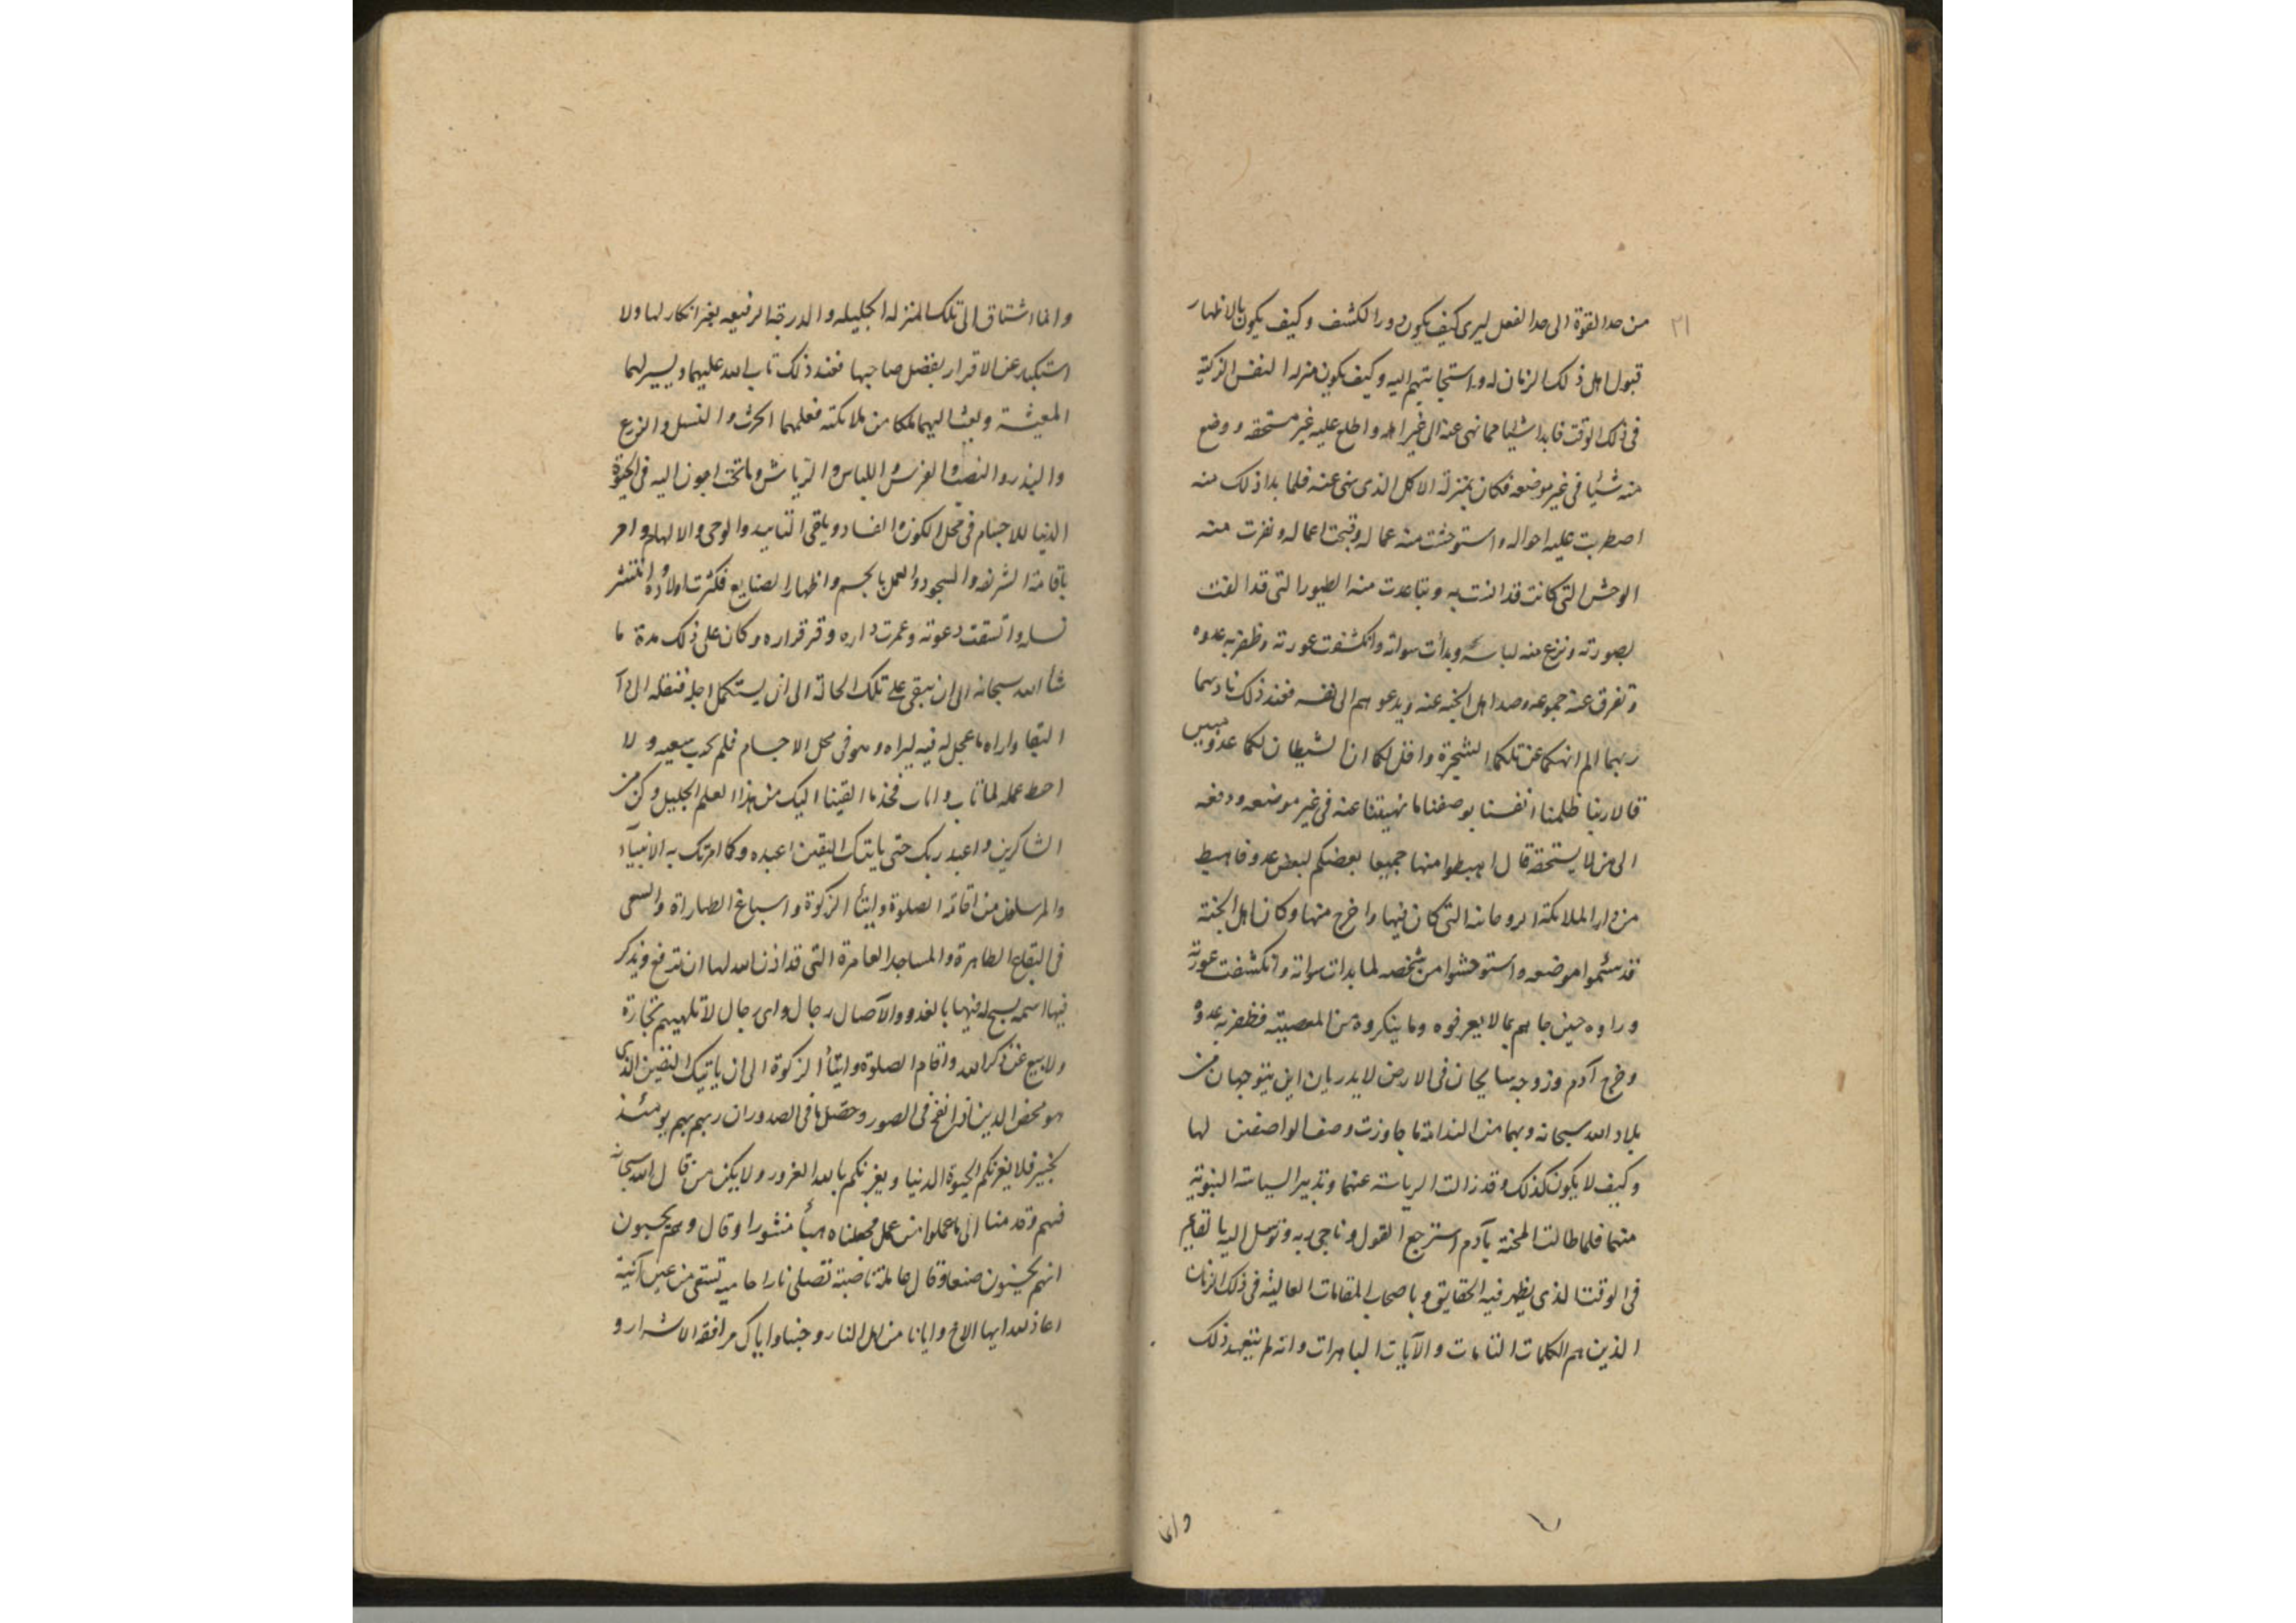 ٢١
من حد القوة الى حد الفعل ليرى كيف يكون دور الكشف وكيف يكون بالاظهار
قبول اهل ذلك الزمان له واستجابتهم اليه وكيف يكون منزلة النفس الزكية
فى ذلك الوقت فابدا شيئا مما نهى عنه الى غير اهله واطلع عليه غير مستحقه ووضع
منه شيئا فى غير موضعه فكان بمنزلة الاكل الذى نهى عنه فلما بدا ذلك منه
اضطربت عليه احواله واستوحشت منه عماله وقبحت اعماله ونفرت منه
الوحش التى كانت قد انست به وتباعدت منه الطيور التى قد الفت
بصورته ونزع عنه لباسه وبدأت سواته وانكشفت عورته وظفر به عدوه
وتفرق عنه جموعه وصد اهل الجنة عنه ويدعوهم الى نفسه فعند ذلك ناديهما
ربهما الم انهكما عن تلكما الشجرة واقل لكما ان الشيطان لكما عدو مبين
قالا ربنا ظلمنا انفسنا بوضعنا ما نهيتنا عنه فى غير موضعه ودفعه
الى من لا يستحقه قال اهبطوا منها جميعا بعضكم لبعض عدو فاهبط
من دار الملائكة الروحانه التى كان فيها واخرج منها وكان اهل الجنة
قد سئموا موضعه واستوحشوا من شخصه لما بدات سواته وانكشفت عورته
وراوه حين جاهم بما لا يعرفوه وما ينكروه من المعصيته فظفر به عدوه
وخرج آدم وزوجه سايحان فى الارض لا يدريان اين يتوجهان من
بلاد الله سبحانه وبهما من الندامة ما جاوزت وصف الواصفين لها
وكيف لا يكون كذلك وقد زالت الرياسة عنهما وتدبير السياسة النبوية
منهما فلما طالت المحنة بآدم استرجع القول وناجى ربه وتوسل اليه بالقايم
فى الوقت الذى يظهر فيه الحقايق وباصحاب المقامات العالية فى ذلك الزمان
الذين هم الكلمات التامات والآيات الباهرات وانه لم يتعهد ذلك
وانما
وانما اشتاق الى تلك المنزله الجليله والدرجة الرفيعه بغير انكار لها ولا
استكبار عن الاقرار بفضل صاحبها فعند ذلك تاب الله عليهما ويسر لهما
المعيشة وبعث اليهما ملكا من ملائكته فعلمهما الحرث والنسل والزرع
والبذر والنصب والغرس واللباس والرياش وما تحتاجون اليه فى الحيوة
الدنيا للاجسام فى محل الكون والفساد ويلقى التاييد والوحى والالهام وامر
باقامة الشريعه والسجود والعمل بالجسم واظهار الصنايع فكثرت اولاده وانتشر
نسله واتسقت دعوته وعمرت داره وقر قراره وكان على ذلك مدة ما
شاء الله سبحانه الى ان يبقى على تلك الحالة الى ان يستكمل اجله فنقله الى دار
البقا واراه ما عجل له فيه ليراه وهو فى محل الاجسام فلم يخب سعيه ولا
احبط عمله لما تاب واناب فخذ ما القينا اليك من هذا العلم الجليل وكن من
الشاكرين واعبد ربك حتى ياتيك اليقين اعبده وكما امرتك به الانبياء
والمرسلون من اقامة الصلوة وايتاء الزكوة واسباغ الطهارة والسعى
فى البقاع الطاهرة والمساجد العامرة التى قد اذن الله لها ان ترفع ويذكر
فيها اسمه يسبح له فيها بالغدو والآصال رجال واى رجال لا تلهيهم تجارة
ولا بيع عن ذكر الله واقام الصلوة وايتاء الزكوة الى ان ياتيك اليقين الذى
هو محض الدين اذا نفخ فى الصور وحصل ما فى الصدور ان ربهم بهم يومئذ
لخبير فلا يغرنكم الحيوة الدنيا ويغرنكم بالله الغرور ولا يكن من قال الله سبحانه
فيهم وقدمنا الى ما عملوا من عمل فجعلناه هباء منثورا وقال وهم يحسبون
انهم يحسنون صنعا وقال عاملة ناصبة تصلى نارا حامية تسقى من عين آنية
اعاذ الله ايها الاخ وايانا من اهل النار وجنبنا واياك مرافقة الاشرار و